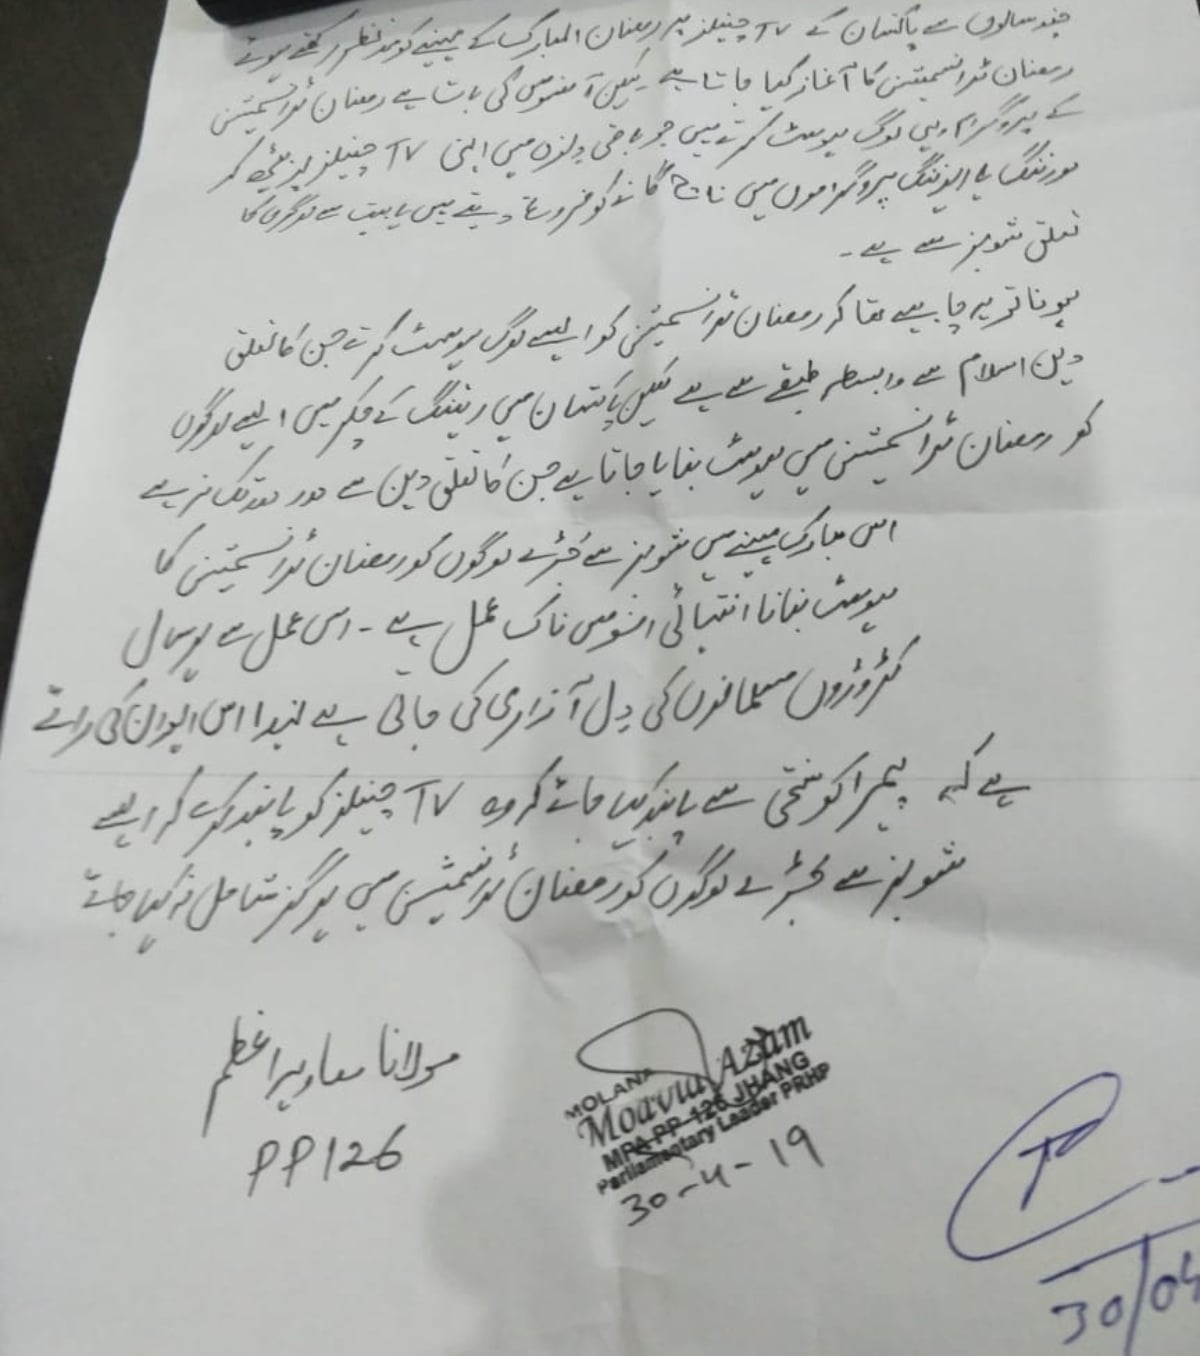 چند سالوں سے پاکستان کے TV چینلز پر رمضان المبارک کے مہینے کو مدنظر رکھتے ہوئے
رمضان ٹرانسمیشن کا آغاز کیا جاتا ہے لیکن افسوس کی بات ہے رمضان ٹرانسمیشن
کے پروگرام وہی لوگ ہوسٹ کرتے ہیں جو باقی دنوں میں اپنی TV چینلز پر بیٹھ کر
مورننگ یا ایوننگ پروگراموں میں ناچ گانے کو فروغ دیتے ہیں یا بہت سے لوگوں کا
تعلق شوبز سے ہے ۔
ہونا تو یہ چاہیے تھا کہ رمضان ٹرانسمیشن کو ایسے لوگ ہوسٹ کرتے جن کا تعلق
دین اسلام سے وابسطہ طبقے سے ہے لیکن پاکستان میں ریٹنگ کے چکر میں ایسے لوگوں
کو رمضان ٹرانسمیشن میں ہوسٹ بنایا جاتا ہے جن کا تعلق دین سے دور دور تک نہ ہے
اس مبارک مہینے میں شوبز سے جڑے لوگوں کو رمضان ٹرانسمیشن کا
ہوسٹ بنانا انتہائی افسوس ناک عمل ہے ۔ اس عمل سے ہر سال
کڑوڑوں مسلمانوں کی دل آزاری کی جاتی ہے لہذا اس ایوان کی رائے
ہے کہ پیمرا کو سختی سے پابند کیا جائے کہ وہ TV چینلز کو پابند کرے کہ ایسے
شوبز سے جڑے لوگوں کو رمضان ٹرانسمیشن میں ہرگز شامل نہ کیا جائے
مولانا معاویہ اعظم
PP 126
MOLANA
Moavia Azam
MPA PP-126 JHANG
Parliamentary Leader PRHP
30-4-19
30/04